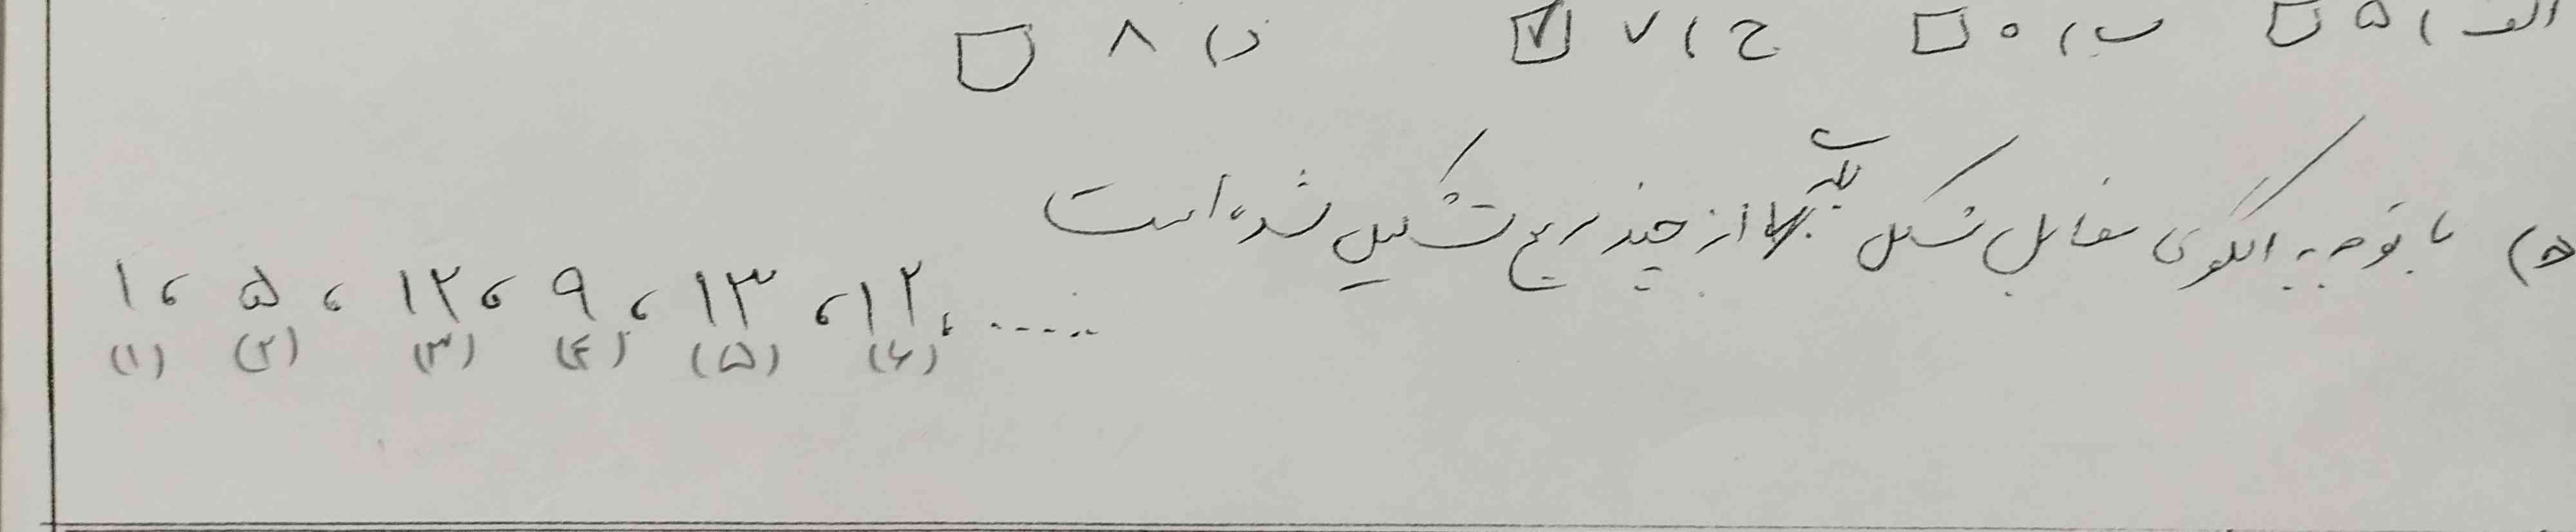 الف) ۵ ب) ۰ ج) ۷ د) ۸
۵) با توجه به الگوی مقابل شکل از چند مربع تشکیل شده است
۱، ۵، ۱۲، ۹، ۱۳، ۱۲، .....
(۱) (۲) (۳) (۴) (۵) (۶)